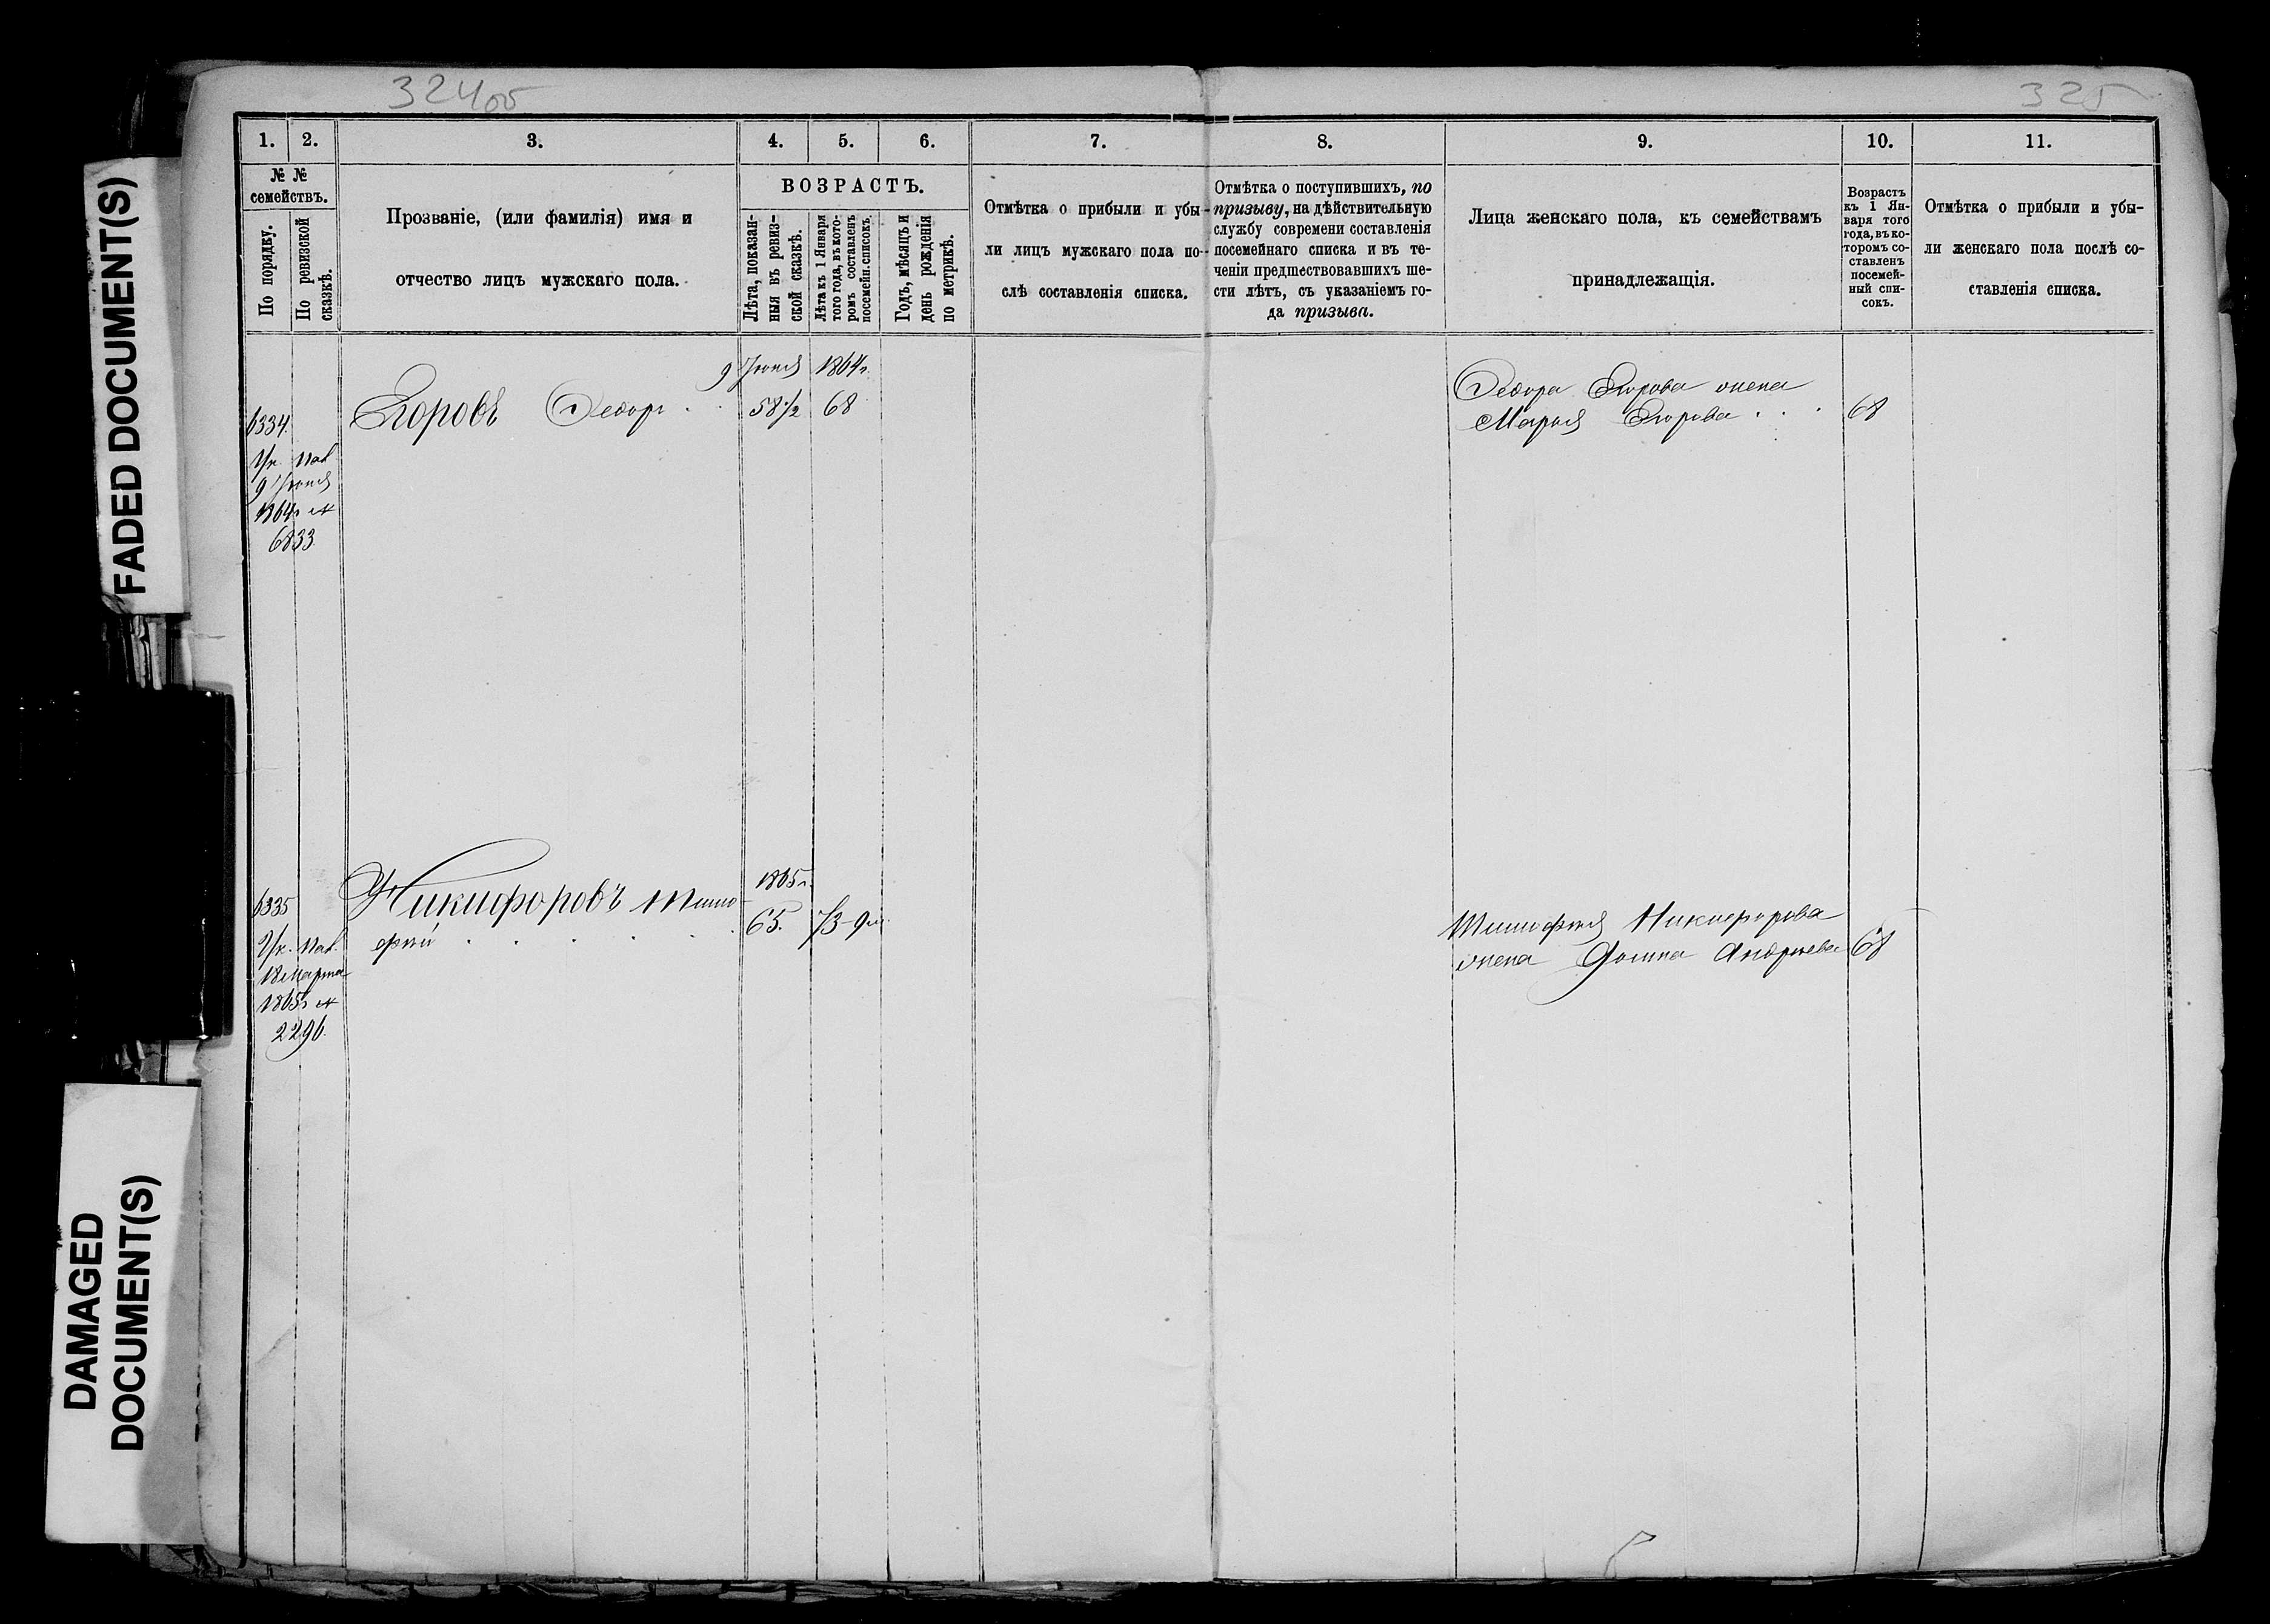 324об
325
1. 2. 3. 4. 5. 6. 7. 8. 9. 10. 11.
№ №
семействъ.
По порядку.
По ревизской
сказкѣ.
Прозваніе, (или фамилія) имя и
отчество лицъ мужскаго пола.
ВОЗРАСТЪ.
Лѣта, показан-
ныя въ ревиз-
ской сказкѣ.
Лѣта къ 1 Января
того года, въ кото-
ромъ составленъ
посемейн. списокъ.
Годъ, мѣсяцъ и
день рожденія
по метрикѣ.
Отмѣтка о прибыли и убы-
ли лицъ мужскаго пола по-
слѣ составленія списка.
Отмѣтка о поступившихъ, по
призыву, на дѣйствительную
службу современи составленія
посемейнаго списка и въ те-
ченіи предшествовавшихъ ше-
сти лѣтъ, съ указаніемъ го-
да призыва.
Лица женскаго пола, къ семействамъ
принадлежащія.
Возрастъ
къ 1 Ян-
варя того
года, въ ко-
торомъ со-
ставленъ
посемей-
ный спи-
сокъ.
Отмѣтка о прибыли и убы-
ли женскаго пола послѣ со-
ставленія списка.
9 Іюня 1864г.
6334.
Егоровъ Ѳедоръ . . 58½ 68
Ѳедора Егорова жена
Марья Егорова . . . 68
Ук. Пал.
9 Іюня
1864г №
6833
1865г.
6335
Никифоровъ Тимо-
фей . . . . . . 65. 73-9м.
Тимофея Никифорова
жена Домна Андреева 68
Ук. Пал.
18 Марта
1865г №
2296.
FADED DOCUMENT(S)
DAMAGED
DOCUMENT(S)